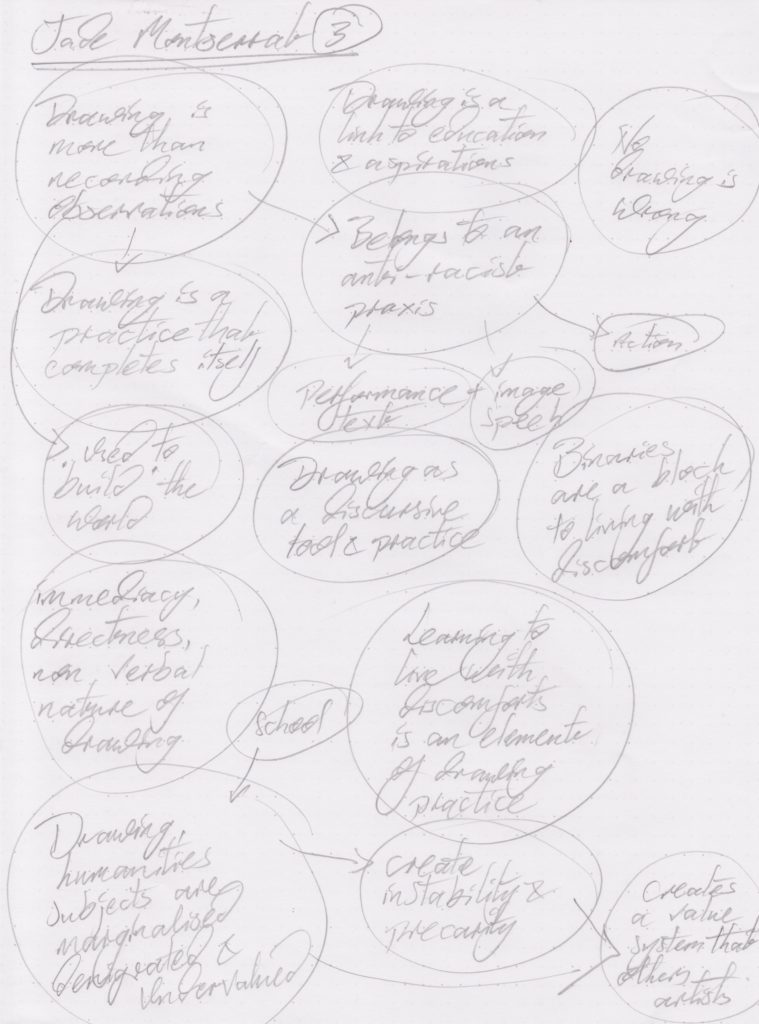 Jade Montserrat 3
Drawing is
more than
recording
observations
Drawing is a
link to education
& aspirations
No
drawing is
wrong
Belongs to an
anti-racist
praxis
Drawing is a
practice that
completes itself
Action
Performance +
text
image
speech
used to
"build" the
world
Drawing as
a discursive
tool & practice
Binaries
are a block
to living with
discomfort
immediacy,
directness,
non verbal
nature of
drawing
School
Learning to
live with
discomforts
is an element
of drawing
practice
Drawing,
humanities
subjects are
marginalised
denigrated &
undervalued
create
instability &
precarity
Creates
a value
system that
others
artists